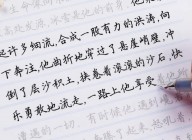 起许多细流,合成一股有力的洪涛,向
下奔注,他曲折地穿过了悬崖峭壁,冲
倒了层沙积土,挟卷着滚滚的沙石,快
乐勇敢地流走,一路上他享受